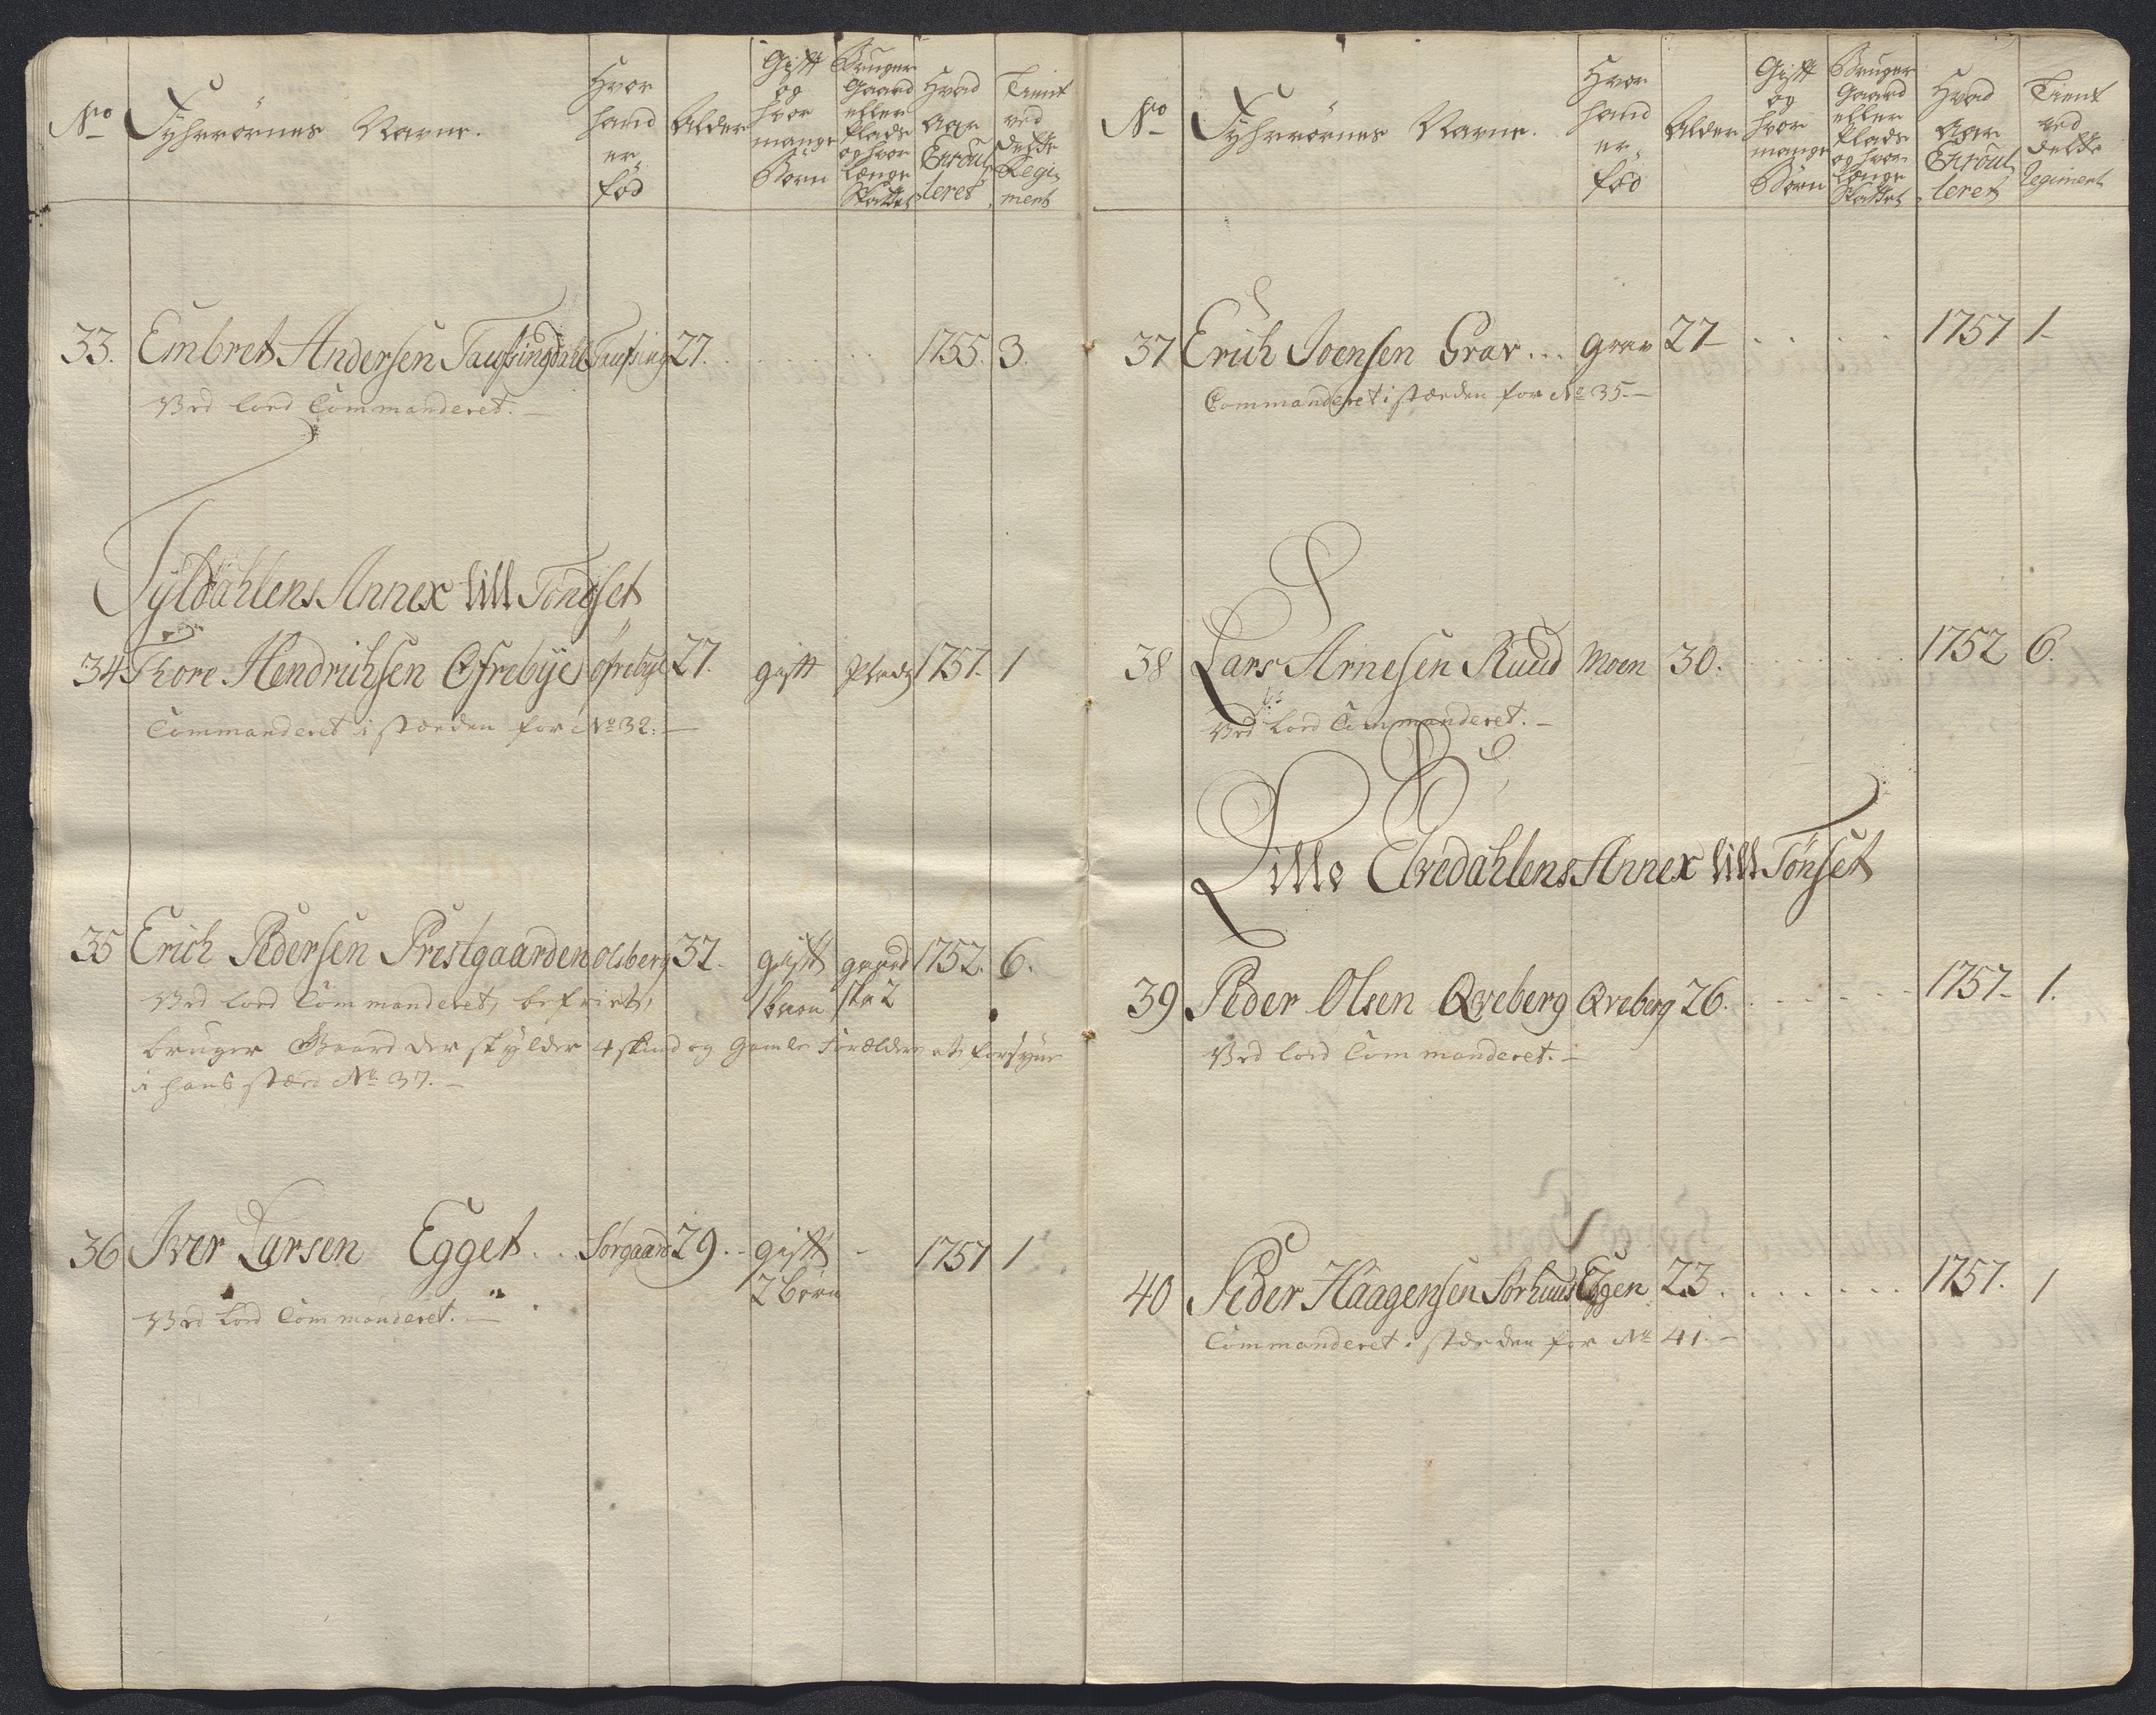 No
Fyhrrørnes Navne.
Hvor
hand
er
fød
Alder
Gift
og
hvor
mange
Børn
Bruger
Gaard
eller
Plads
og hvor
længe
Skattet
Hvad
Aar
Enroul
leret
Tient
ved
dette
Regi
ment
33. Embret Andersen Taufsingdahl Taufsing 27. 1755. 3.
Ved Lord Commanderet.
Tyldahlens Annex till Tøndset
34 Thore Hendrichsen Øfrebÿe øfrebÿe 27. gift Plads 1757. 1
Commanderet i stæden for No 32.
35 Erich Pedersen Prestgaarden Olsberg 32. gift gaard 1752. 6.
1 barn ska 2
Ved Lord Commanderet, befriet,
bruger Gaard der skylder 4 skind og gamle Forældre at forsyne
i hans stæd No 37.
36 Iver Larsen Egget... Sørgaard 29.. gift - 1757 1
2 børn
Ved Lord Commanderet.
No
Fyhrrørnes Navne.
Hvor
hand
er
fød
Alder
Gift
og
hvor
mange
Børn
Bruger
Gaard
eller
Plads
og hvor
længe
Skattet
Hvad
Aar
Enroul
leret
Tient
ved
dette
Regiment
37 Erich Joensen Grav... grav 27 1757 1
Commanderet i stæden for No 35.
38 Lars Arnesen Ruud Moen 30. 1752 6.
Ved Lord Commanderet.
Lille Elvedahlens Annex till Tønset
39 Peder Olsen Qveberg Qveberg 26. 1757 1.
Ved Lord Commanderet.
40 Peder Haagensen Sørhuus Eggen 23. 1757. 1
Commanderet i stæden for No 41.